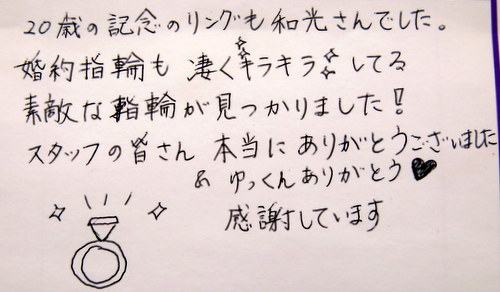 20歳の記念のリングも和光さんでした。
婚約指輪も 凄くキラキラしてる
素敵な指輪が見つかりました！
スタッフの皆さん 本当にありがとうございました
& ゆっくんありがとう♥
感謝しています